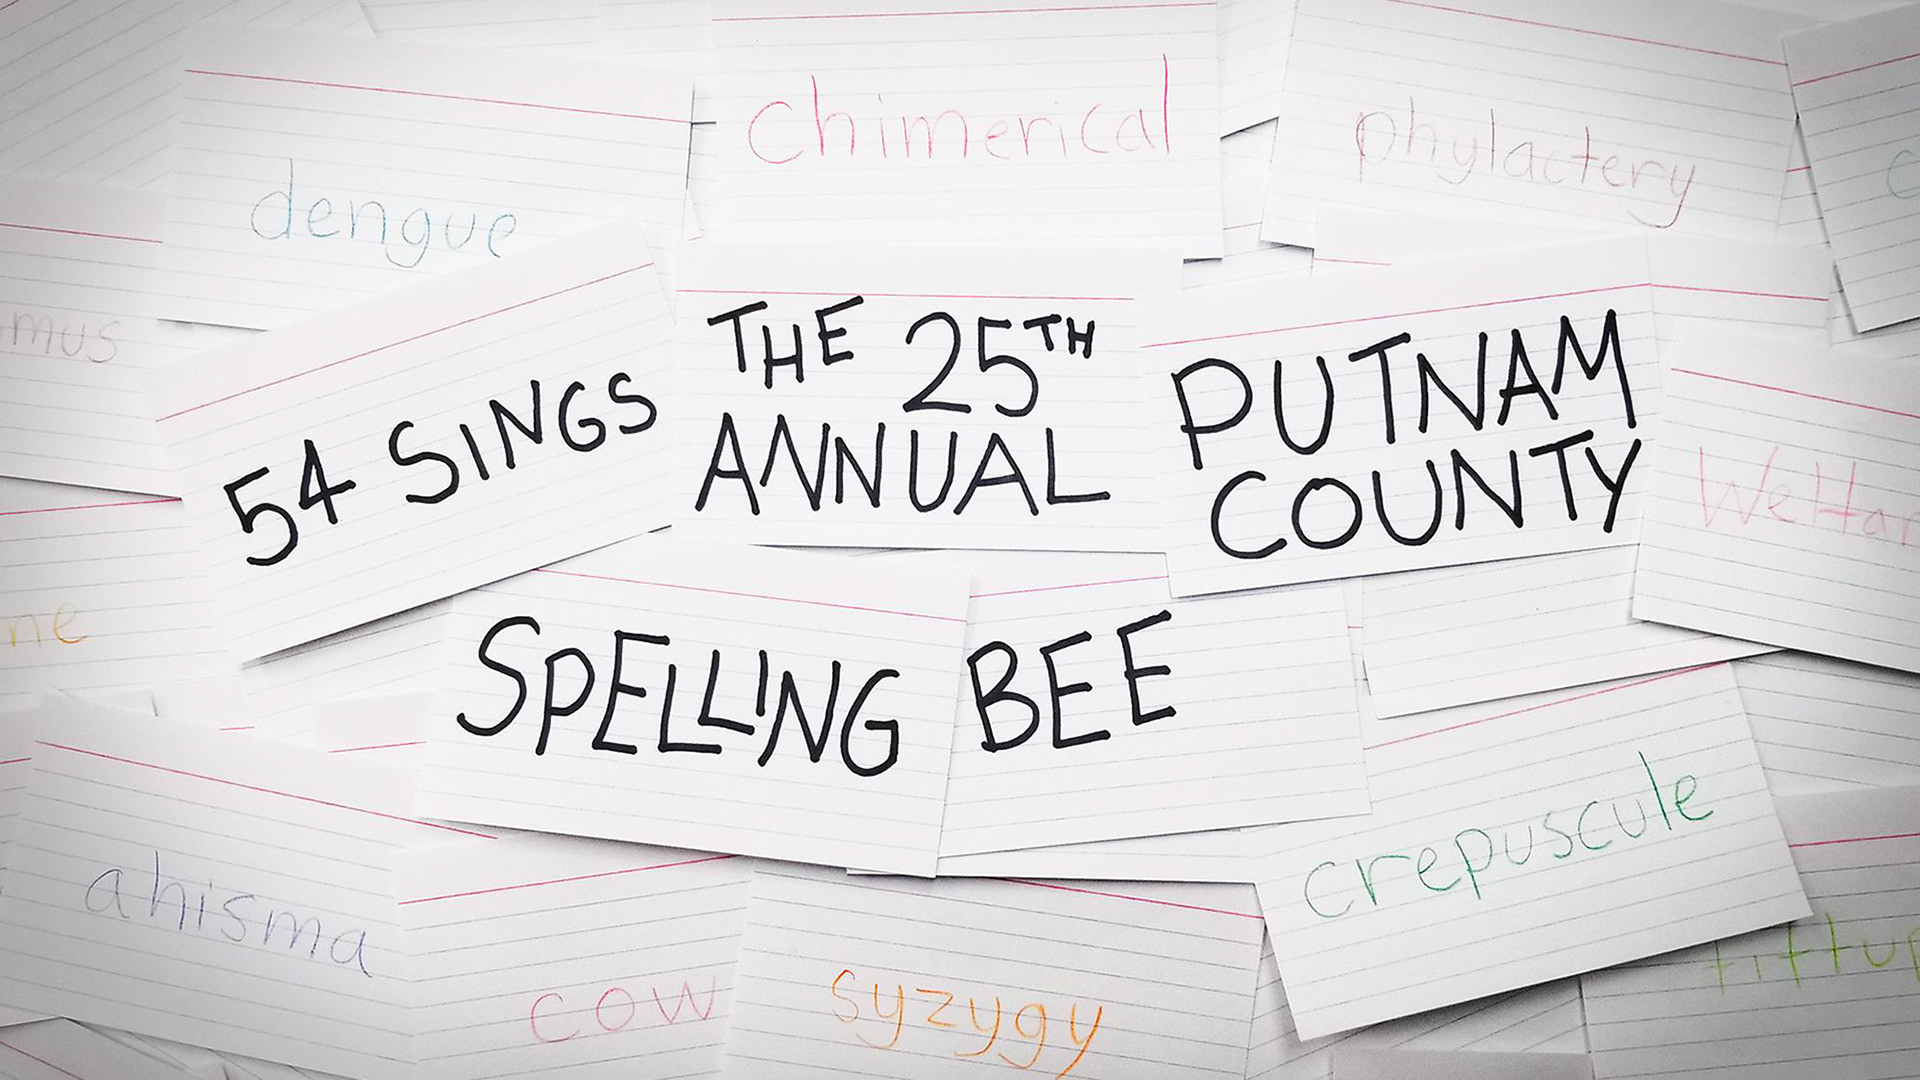 chimerical
phylactery
c
dengue
mus
54 SINGS
THE 25TH
ANNUAL
PUTNAM
COUNTY
Weltan
ne
SPELLING BEE
crepuscule
ahisma
tittup
cow
syzygy